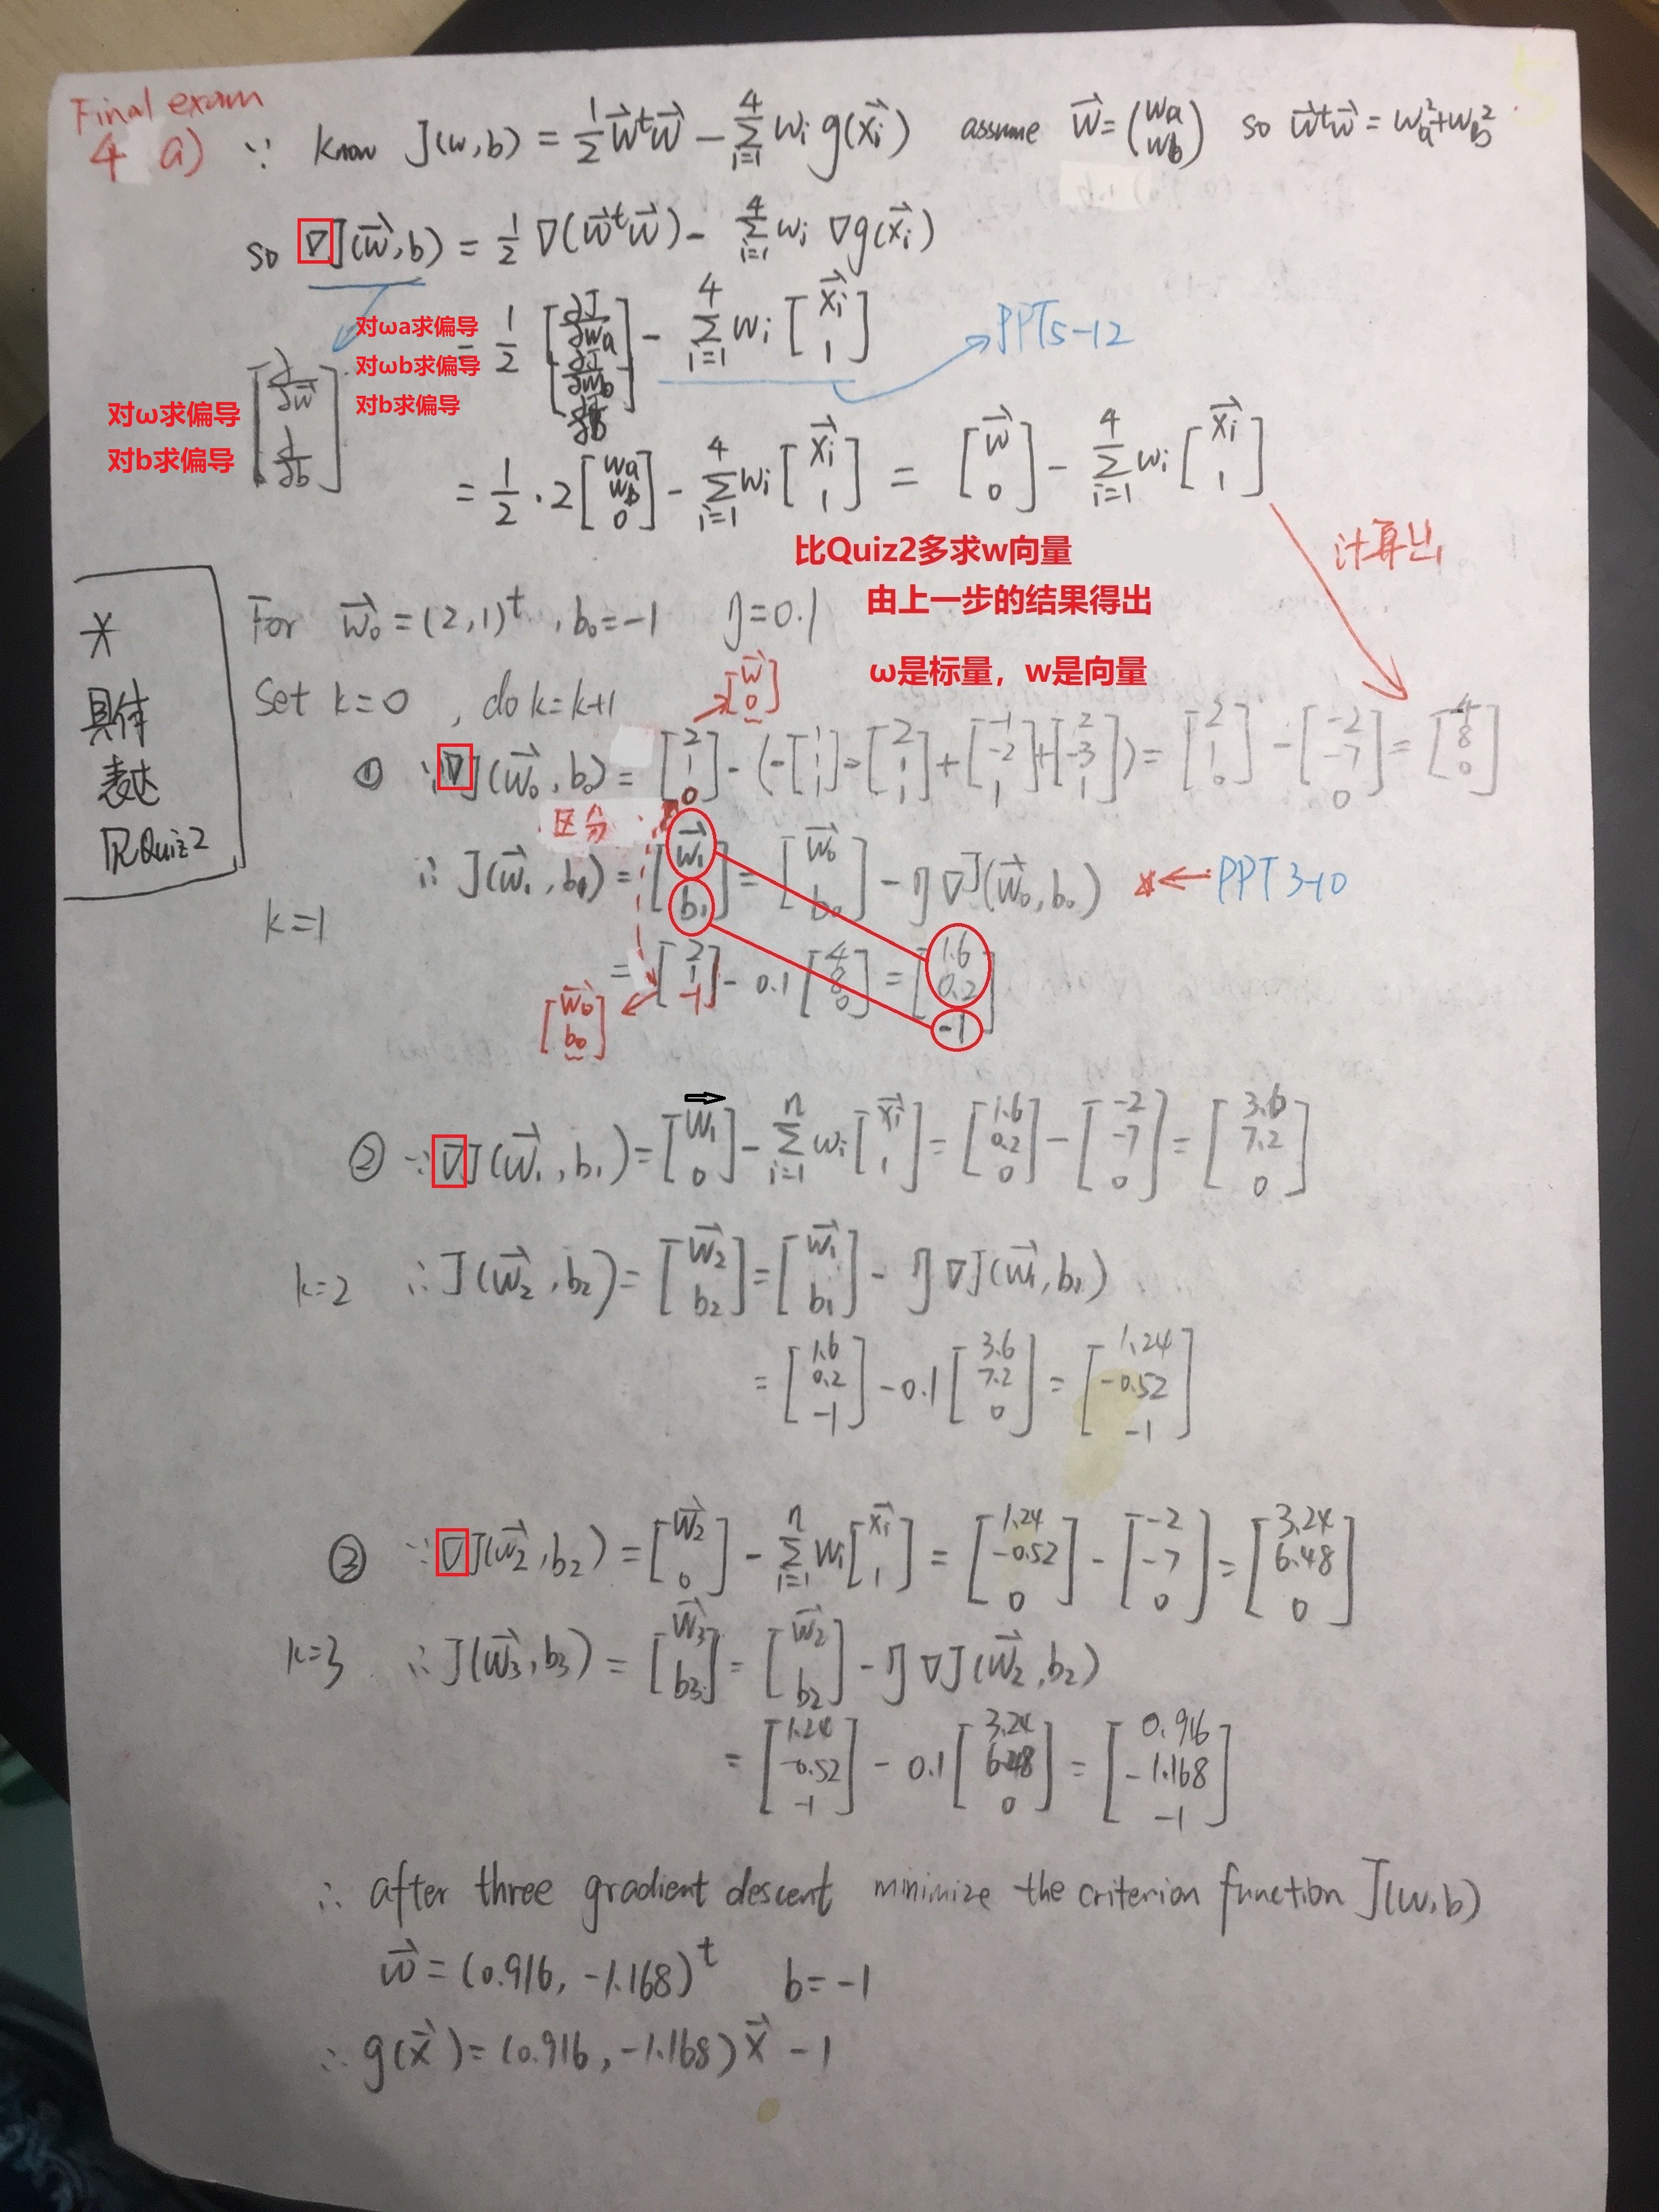 Final exam
4 a) ∵ know J(w,b) = 1/2 w⃗ᵗw⃗ − Σ_{i=1}^{4} ωi g(x⃗i) assume w⃗ = (wa wb) so w⃗ᵗw⃗ = wa²+wb²
so ∇J(w⃗,b) = 1/2 ∇(w⃗ᵗw⃗) − Σ_{i=1}^{4} ωi ∇g(x⃗i)
= 1/2 [∂J/∂wa ∂J/∂wb ∂J/∂b] − Σ_{i=1}^{4} ωi [x⃗i 1] PPT5-12
对ωa求偏导
对ωb求偏导
对b求偏导
[∂/∂w⃗ ∂/∂b]
对ω求偏导
对b求偏导
= 1/2 · 2 [wa wb 0] − Σ_{i=1}^{4} ωi [x⃗i 1] = [w⃗ 0] − Σ_{i=1}^{4} ωi [x⃗i 1]
计算出
比Quiz2多求w向量
由上一步的结果得出
ω是标量，w是向量
*
具体
表达
见Quiz2
For w⃗0 = (2,1)ᵗ, b0 = −1 η = 0.1
Set k=0 , do k=k+1
[w⃗ 0]
① ∵ ∇J(w⃗0, b0) = [2 1 0] − (−[1 1 1] − [2 1 1] + [−1 −2 1] + [2 −3 1]) = [2 1 0] − [−2 −7 0] = [4 8 0]
区分
∴ J(w⃗1, b1) = [w⃗1 b1] = [w⃗0 b0] − η∇J(w⃗0, b0) * ← PPT 3-10
k=1
= [2 1 −1] − 0.1 [4 8 0] = [1.6 0.2 −1]
[w⃗0 b0]
② ∵ ∇J(w⃗1, b1) = [w⃗1 0] − Σ_{i=1}^{n} ωi [x⃗i 1] = [1.6 0.2 0] − [−2 −7 0] = [3.6 7.2 0]
k=2 ∴ J(w⃗2, b2) = [w⃗2 b2] = [w⃗1 b1] − η∇J(w⃗1, b1)
= [1.6 0.2 −1] − 0.1 [3.6 7.2 0] = [1.24 −0.52 −1]
③ ∵ ∇J(w⃗2, b2) = [w⃗2 0] − Σ_{i=1}^{n} ωi [x⃗i 1] = [1.24 −0.52 0] − [−2 −7 0] = [3.24 6.48 0]
k=3 ∴ J(w⃗3, b3) = [w⃗3 b3] = [w⃗2 b2] − η∇J(w⃗2, b2)
= [1.24 −0.52 −1] − 0.1 [3.24 6.48 0] = [0.916 −1.168 −1]
∴ after three gradient descent minimize the criterion function J(w,b)
w⃗ = (0.916, −1.168)ᵗ b = −1
∴ g(x⃗) = (0.916, −1.168) x⃗ − 1